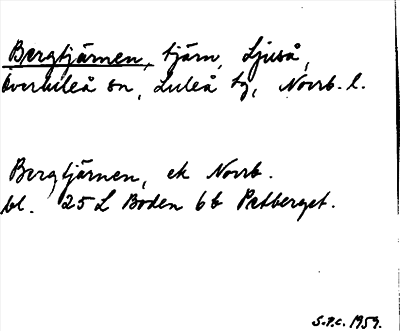 Bergtjärnen, tjärn, Ljuså,
Överluleå sn, Luleå tg, Norrb. l.
Bergtjärnen, ek Norrb.
bl. 25 L Boden 6 b Pretberget.
S.P.C. 1959.